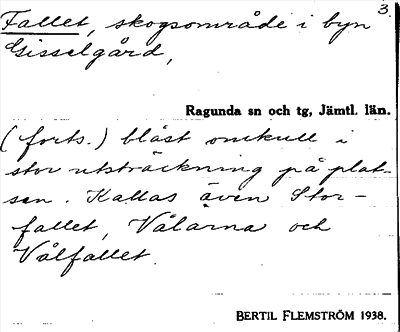 3.
Fallet, skogsområde i byn
Gisselgård,
Ragunda sn och tg, Jämtl. län.
(forts.) blåst omkull i
stor utsträckning på plat-
sen. Kallas även Stor-
fallet, Vålarna och
Vålfallet.
BERTIL FLEMSTRÖM 1938.